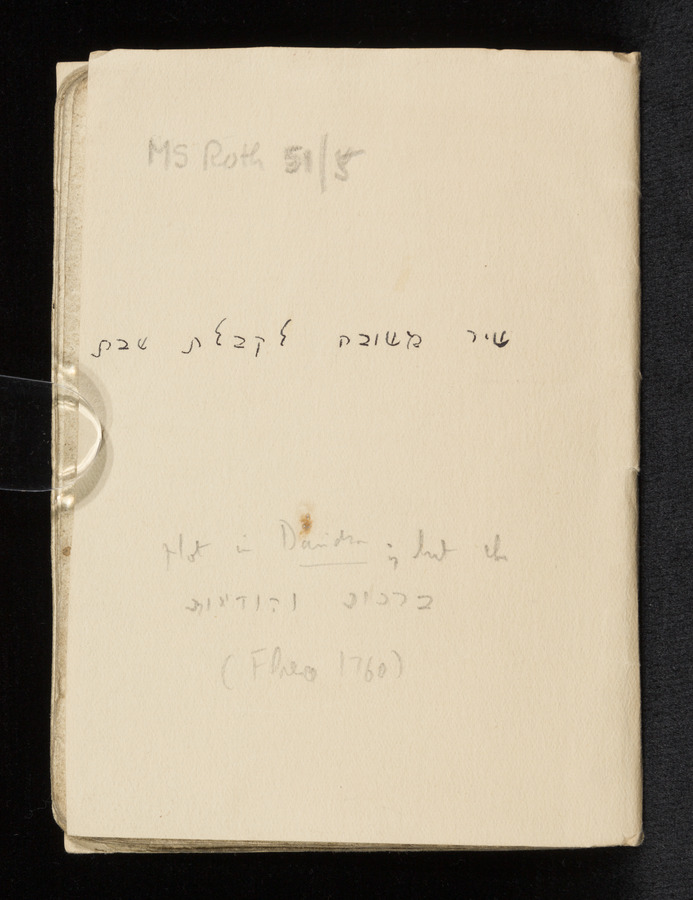 MS Roth 51/5
שיר משובה לקבלת שבת
Not in Davidson; but in
ברכות והודיות
(Firenze 1760)